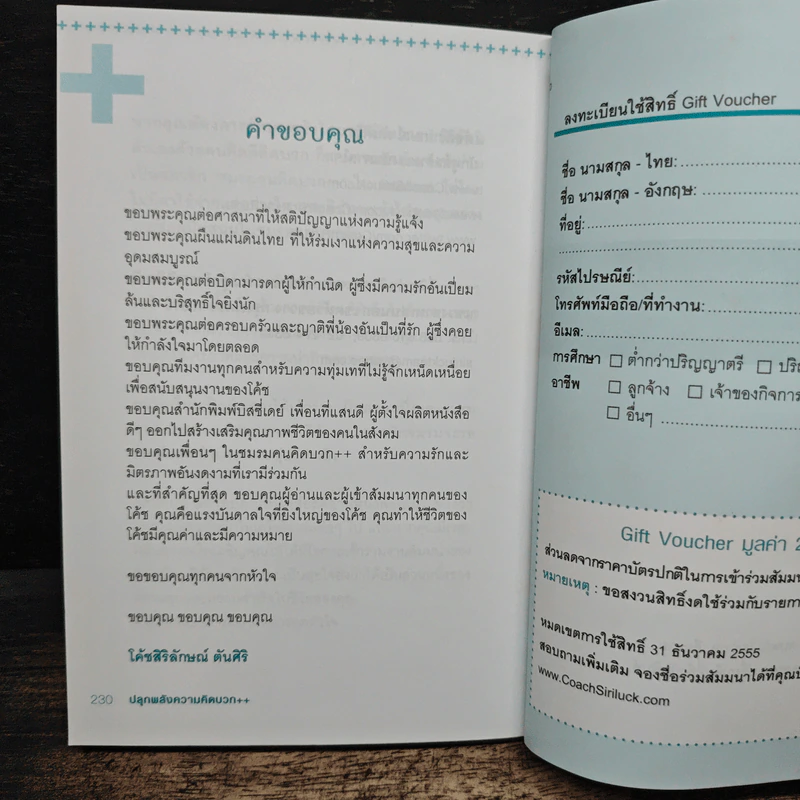 คำขอบคุณ
ขอบพระคุณต่อศาสนาที่ให้สติปัญญาแห่งความรู้แจ้ง
ขอบพระคุณผืนแผ่นดินไทย ที่ให้ร่มเงาแห่งความสุขและความ
อุดมสมบูรณ์
ขอบพระคุณต่อบิดามารดาผู้ให้กำเนิด ผู้ซึ่งมีความรักอันเปี่ยม
ล้นและบริสุทธิ์ใจยิ่งนัก
ขอบพระคุณต่อครอบครัวและญาติพี่น้องอันเป็นที่รัก ผู้ซึ่งคอย
ให้กำลังใจมาโดยตลอด
ขอบคุณทีมงานทุกคนสำหรับความทุ่มเทที่ไม่รู้จักเหน็ดเหนื่อย
เพื่อสนับสนุนงานของโค้ช
ขอบคุณสำนักพิมพ์บิสซี่เดย์ เพื่อนที่แสนดี ผู้ตั้งใจผลิตหนังสือ
ดีๆ ออกไปสร้างเสริมคุณภาพชีวิตของคนในสังคม
ขอบคุณเพื่อนๆ ในชมรมคนคิดบวก++ สำหรับความรักและ
มิตรภาพอันงดงามที่เรามีร่วมกัน
และที่สำคัญที่สุด ขอบคุณผู้อ่านและผู้เข้าสัมมนาทุกคนของ
โค้ช คุณคือแรงบันดาลใจที่ยิ่งใหญ่ของโค้ช คุณทำให้ชีวิตของ
โค้ชมีคุณค่าและมีความหมาย
ขอขอบคุณทุกคนจากหัวใจ
ขอบคุณ ขอบคุณ ขอบคุณ
โค้ชสิริลักษณ์ ตันศิริ
230 ปลุกพลังความคิดบวก++
ลงทะเบียนใช้สิทธิ์ Gift Voucher
ชื่อ นามสกุล - ไทย:
ชื่อ นามสกุล - อังกฤษ:
ที่อยู่:
รหัสไปรษณีย์:
โทรศัพท์มือถือ/ที่ทำงาน:
อีเมล:
การศึกษา ต่ำกว่าปริญญาตรี
อาชีพ ลูกจ้าง เจ้าของกิจการ
อื่นๆ
Gift Voucher มูลค่า 2
ส่วนลดจากราคาบัตรปกติในการเข้าร่วมสัมมน
หมายเหตุ : ขอสงวนสิทธิ์งดใช้ร่วมกับรายกา
หมดเขตการใช้สิทธิ์ 31 ธันวาคม 2555
สอบถามเพิ่มเติม จองชื่อร่วมสัมมนาได้ที่คุณ
www.CoachSiriluck.com